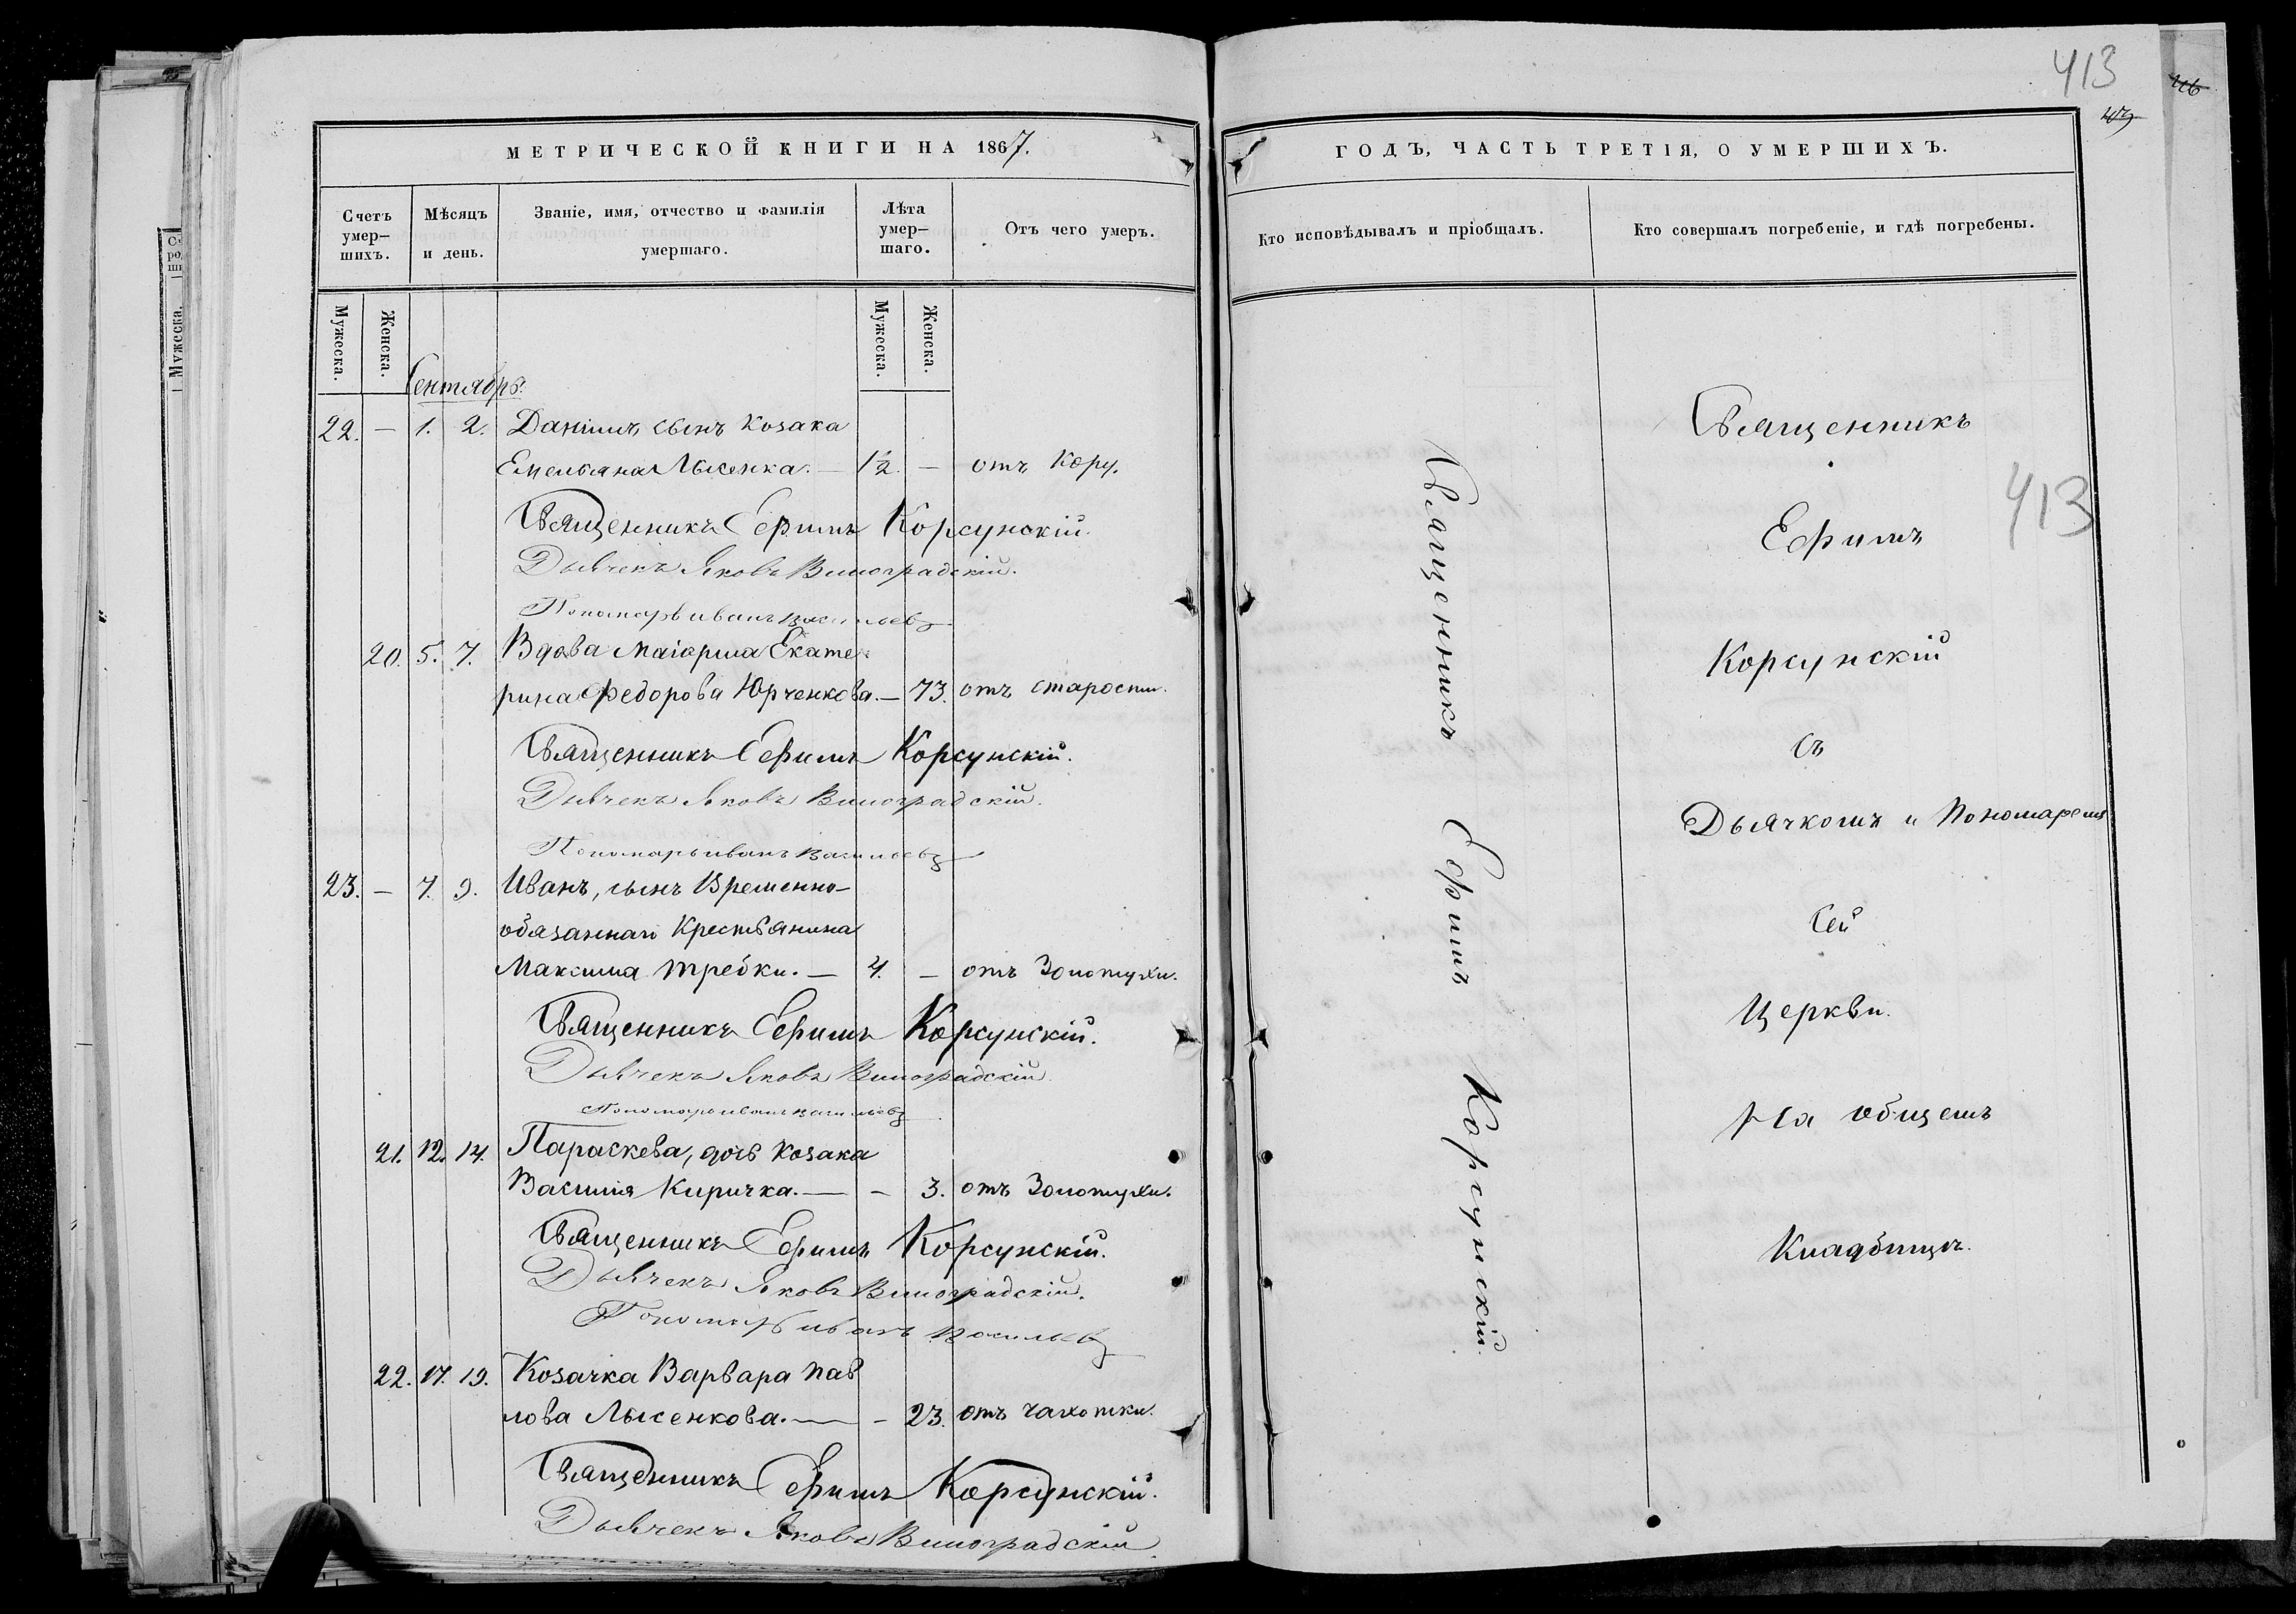 МЕТРИЧЕСКОЙ КНИГИ НА 1867.
Счетъ умер-шихъ.
Мѣсяцъ и день.
Званіе, имя, отчество и фамилія умершаго.
Лѣта умер-шаго.
Отъ чего умеръ.
Мужеска.
Женска.
Мужеска.
Женска.
Сентябрь.
22. — 1. 2. Даніилъ, сынъ козака
Емельяна Лысенка. — 1/2. — отъ Кору.
Священникъ Ефимъ Корсунскій.
Дьячекъ Яковъ Виноградскій.
Пономарь иванъ васильевъ
20. 5. 7. Вдова Маіорша Екате-
рина Федорова Юрченкова. — 73. отъ старости.
Священникъ Ефимъ Корсунскій.
Дьячекъ Яковъ Виноградскій.
Пономарь иванъ васильевъ
23. — 7. 9. Иванъ, сынъ Временно-
обязаннаго Крестьянина
Максима Требки. — 4. — отъ Золотухи.
Священникъ Ефимъ Корсунскій.
Дьячекъ Яковъ Виноградскій
Пономарь иванъ васильевъ
21. 12. 14. Параскева, дочь козака
Василія Киричка. — — 3. отъ Золотухи.
Священникъ Ефимъ Корсунскій.
Дьячекъ Яковъ Виноградскій.
Пономарь иванъ васильевъ
22. 17. 19. Козачка Варвара Пав
лова Лысенкова. — — 23. отъ чахотки.
Священникъ Ефимъ Корсунскій.
Дьячекъ Яковъ Виноградскій
413
ГОДЪ, ЧАСТЬ ТРЕТІЯ, О УМЕРШИХЪ.
Кто исповѣдывалъ и пріобщалъ.
Кто совершалъ погребеніе, и гдѣ погребены.
Священникъ Ефимъ Корсунскій.
Священникъ
413
Ефимъ
Корсунскій
съ
Дьячкомъ и Пономаремъ
Сей
Церкви.
На общемъ
Кладбищѣ.